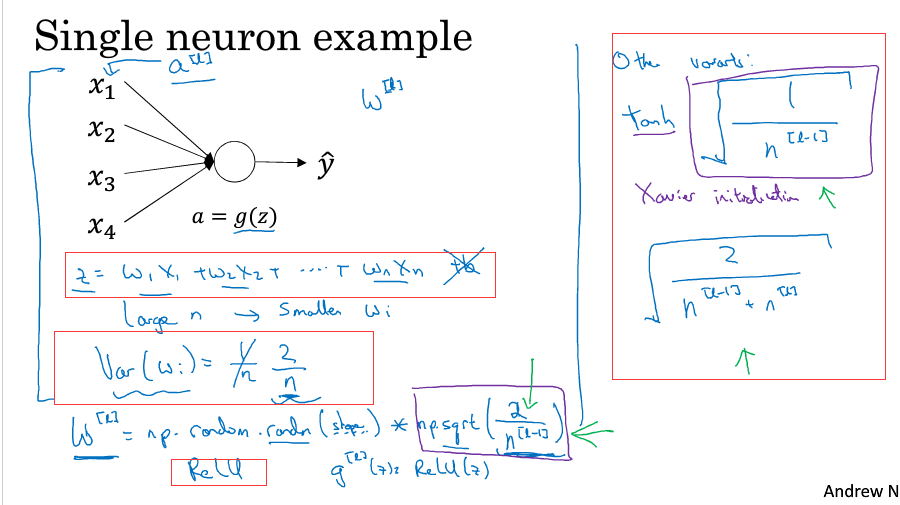 Single neuron example
x₁ a^[l]
x₂ w^[l]
x₃ ŷ
x₄ a = g(z)
z = w₁x₁ + w₂x₂ + ···· + wₙxₙ +b
Large n → Smaller wᵢ
Var(wᵢ) = 1/n 2/n
W^[l] = np.random.randn(shape) * np.sqrt(2/n^[l-1])
ReLU g^[l](z) = ReLU(z)
Other variants:
tanh √(1/n^[l-1])
Xavier initialization ↑
√(2/(n^[l-1] + n^[l]))
↑
Andrew N